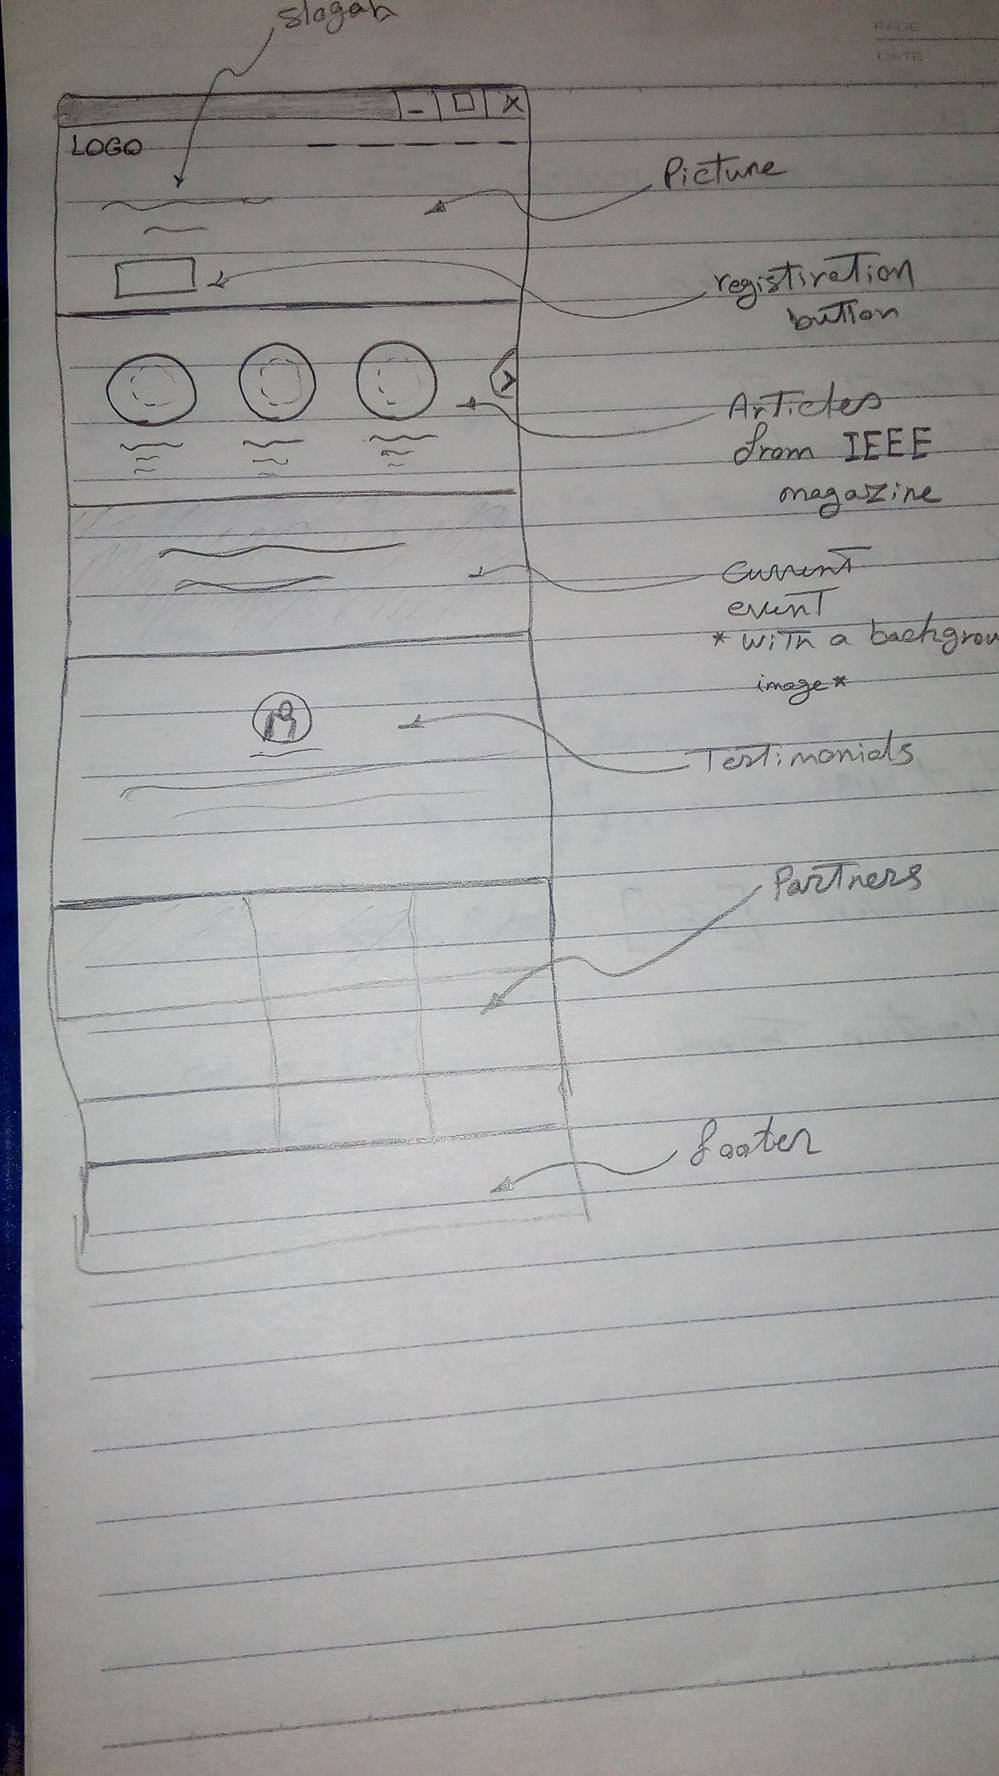 slogan
PAGE
DATE
LOGO
Picture
registiration
button
Articles
from IEEE
magazine
current
event
* with a backgrou
image*
Testimonials
Partners
footer